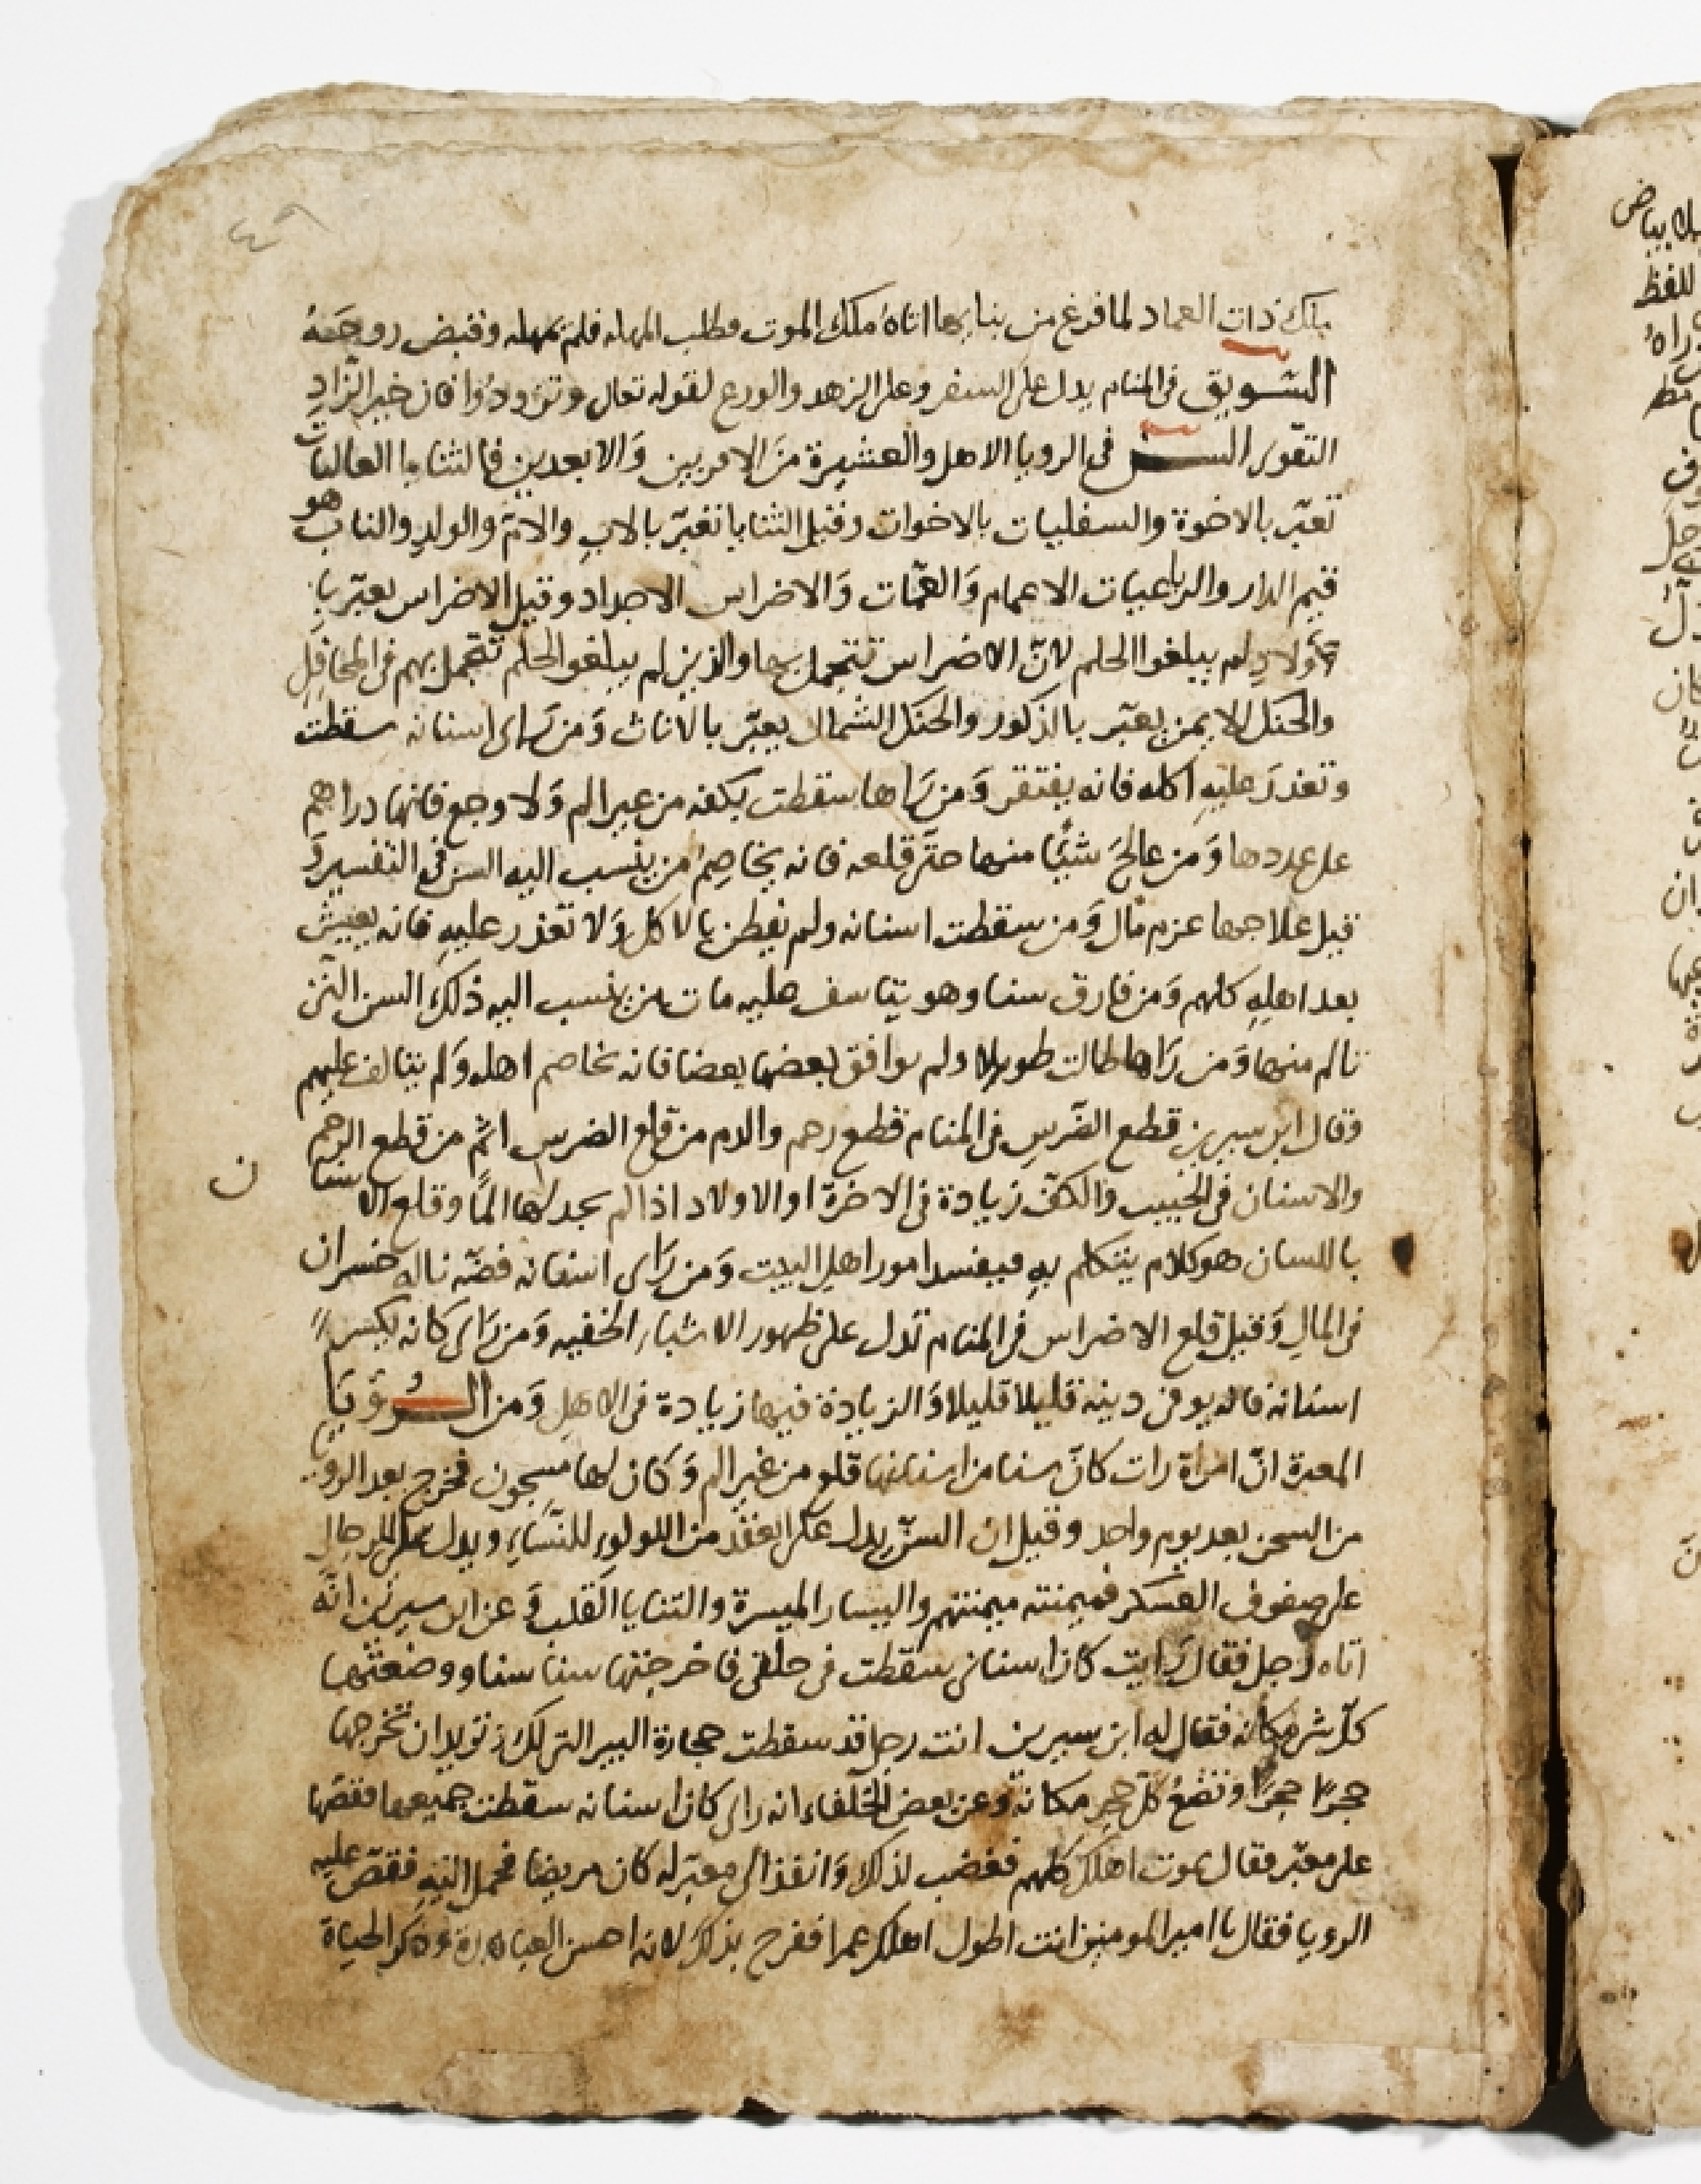 ملك ذات العماد لما فرغ من بنايها اتاه ملك الموت فطلب المهله فلم يمهله وقبض روحه
السويق فى المنام يدل على السفر وعلى الزهد والورع لقوله تعالى وتزودوا فان خير الزاد
التقوى السن فى الرويا الاهل والعشيرة من الاقربين والابعدين فالثنايا العاليات
تعبّر بالاخوة والسفليات بالاخوات وقيل الثنايا تعبّر بالاب والام والولد والناب هو
قيم الدار والرباعيات الاعمام والعمّات والاضراس الاجداد وقيل الاضراس يعبّر با
لاولاد لم يبلغوا الحلم لانّ الاضراس تتجمل بها والذين لم يبلغوا الحلم تتجمل بهم فى المحافل
والحنك الايمن يعبّر بالذكور والحنك الشمال يعبّر بالاناث ومن راى اسنانه سقطت
وتعذر عليه اكله فانه يفتقر ومن راها سقطت بكفه من غير الم ولا وجع فانها دراهم
على عددها ومن عالج شيئا منها حتى قلعه فانه يخاصم من ينسب اليه السن فى التفسير و
قيل علاجها غرم مال ومن سقطت اسنانه ولم يفطن بالاكل ولا تعذر عليه فانه يعيش
بعد اهله كلهم ومن فارق سنا وهو يتاسف عليه مات من ينسب اليه ذلك السن الذى
تالم منها ومن راها طالت طويلا ولم يوافق بعضها بعضا فانه يخاصم اهله ولم يتالف عليهم
وقال ابن سيرين قطع الضرس فى المنام قطع رحم والدم من قلع الضرس اثم من قطع الرحم
والاسنان فى الجيب والكف زيادة فى الاخوة او الاولاد اذا لم يجد لها المًا وقلع الاسنا
ن
باللسان هو كلام يتكلم به فيفسد امور اهل البيت ومن راى اسنانه فضّه ناله خسران
فى المال وقيل قلع الاضراس فى المنام تدل على ظهور الاشياء الخفيه ومن راى كانه يكسر
اسنانه فانه يوفى دينه قليلا قليلا والزيادة فيها زيادة فى الاهل ومن الرؤيا
المعبرة انّ امراة رات كانّ سنا من اسنانها قلع من غير الم وكان لها مسجون فخرج بعد الرويا
من السجن بعد يوم واحد وقيل ان السنّ يدل على العقد من اللولو للنساء ويدل على للرجال
على صفوف العسكر فميمنته ميمنتهم واليسار الميسرة والثنايا القلب وعن ابن سيرين انّه
اتاه رجل فقال رايت كان اسنانى سقطت فى حلقى فاخرجتها سنا سنا ووضعتها
كلّ شى مكانه فقال له ابن سيرين انت رجل قد سقطت حجارة البير التى لك وتريد ان تخرجها
حجرًا حجرًا وتضع كلّ حجر مكانه وعن بعض الخلفاء انه راى كان اسنانه سقطت جميعها فقصّها
على معبّر فقال يموت اهلك كلهم فغضب لذلك وانفذ الى معبّر له كان مريضا فحمل اليه فقصّ عليه
الرويا فقال يا امير المومنين انت اطول اهلك عمرا ففرح بذلك لانه احسن العباره وذكر الحياة